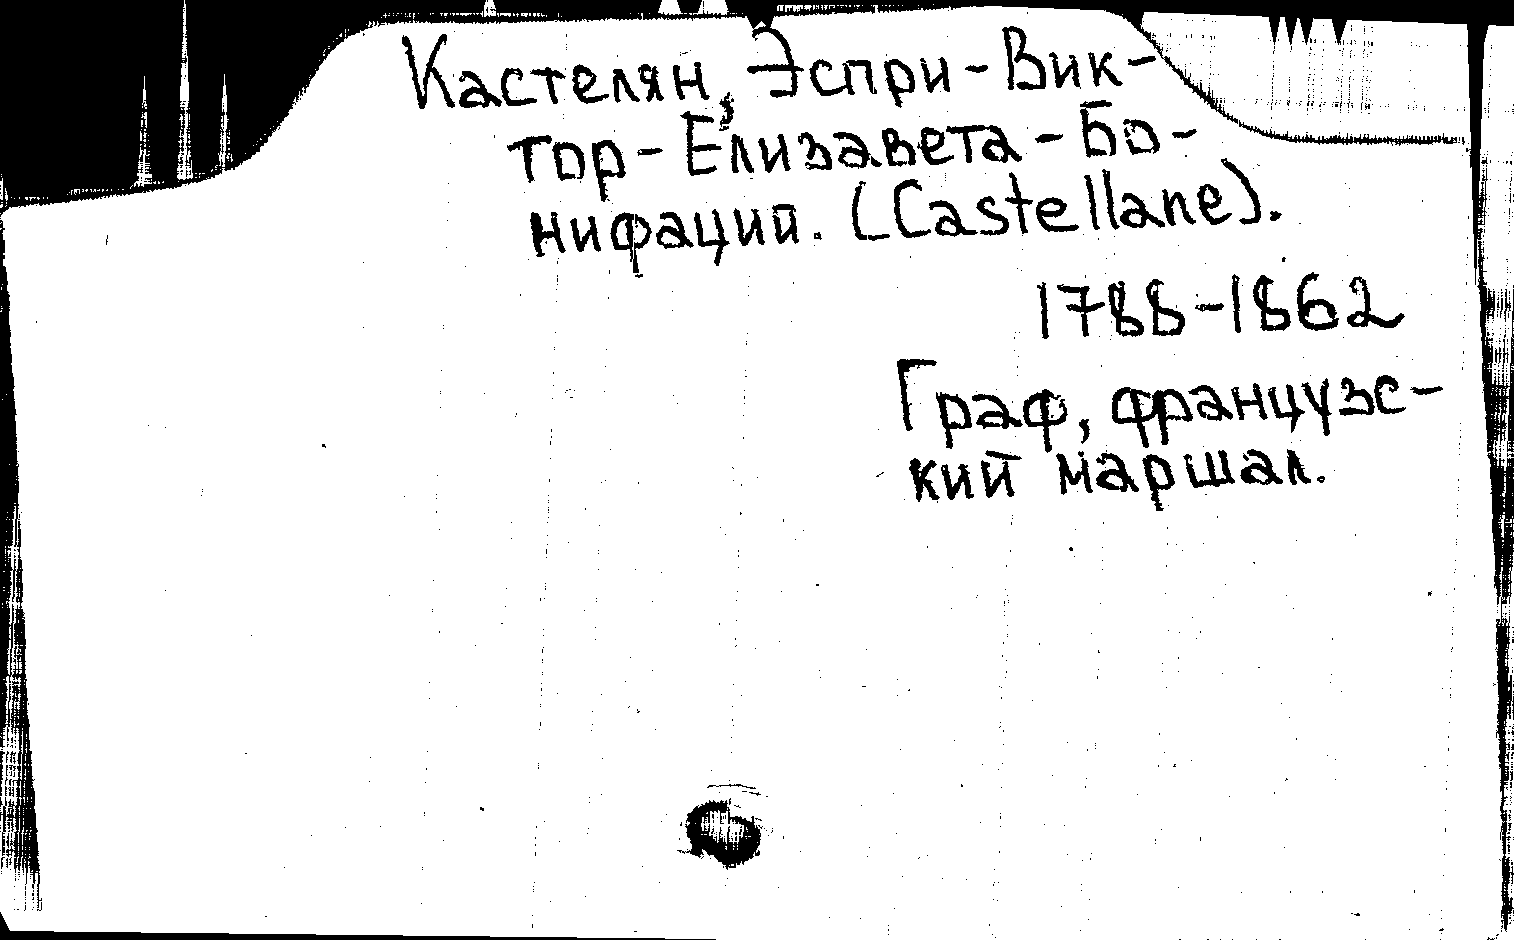 Кастелян, Эспри-Вик-
тор-Елизавета-Бо-
нифаций. (Castellane).
1788-1862
Граф, французс-
кий маршал.